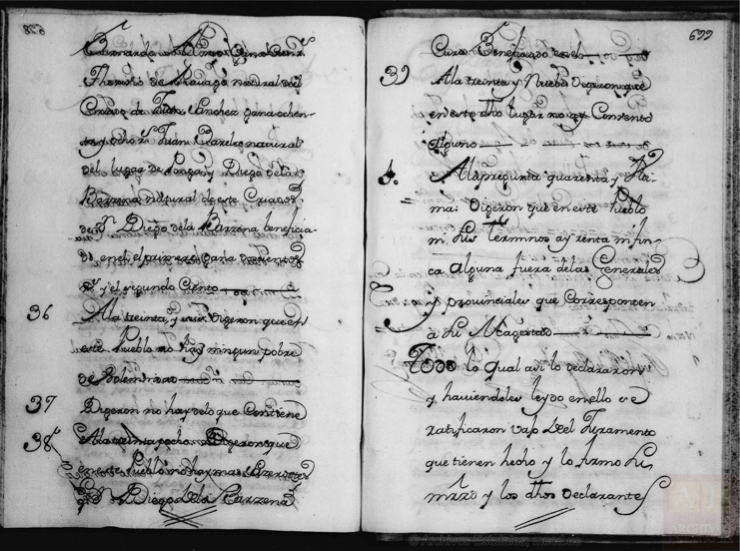 678
Bernardo
Thorivio de Santiago natural del
Criado de Juan Sanchez gana ochen
ta y ocho rs Juan natural
del lugar de y Diego de la
Barzena natural de este Criados
de Dn Diego de la Barzena beneficia
do en el, el primero gana Doscientos
rs y el segundo Ciento
36 A la treinta y seis Digeron que en
este Pueblo no hay ningun pobre
de Solemnidad
37 Digeron no hay de lo que Contiene
38 A la treinta y ocho Digeron que
en este Pueblo no hay mas
que Dn Diego de la Barzena
699
Cura Beneficiado en el
39 A la treinta y Nueve Digeron que
en este dho lugar no ay Convento
alguno
A la pregunta quarenta y Ulti
ma: Digeron que en este Pueblo
ni sus terminos ay renta ni fin
ca alguna fuera de las Generales
y provinciales que Corresponden
a su Magestad
Todo lo qual asi lo declararon
y haviendoles leydo en ello se
ratificaron vajo del Juramento
que tienen hecho y lo firmo su
mrzd y los dhos Declarantes